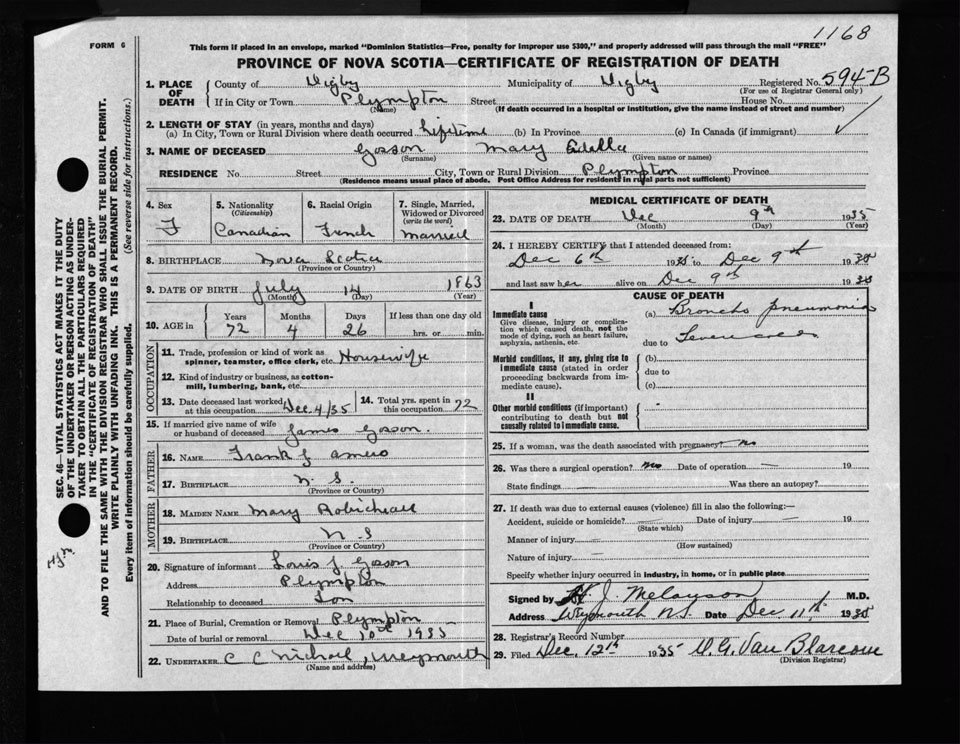 1168
FORM 6
This form if placed in an envelope, marked "Dominion Statistics—Free, penalty for improper use $300," and properly addressed will pass through the mail "FREE"
PROVINCE OF NOVA SCOTIA—CERTIFICATE OF REGISTRATION OF DEATH
1. PLACE OF DEATH County of Digby Municipality of Digby Registered No. 594-B
(For use of Registrar General only)
If in City or Town Plympton Street House No.
(Name) (If death occurred in a hospital or institution, give the name instead of street and number)
2. LENGTH OF STAY (in years, months and days)
(a) In City, Town or Rural Division where death occurred Lifetime (b) In Province (c) In Canada (if immigrant) ✓
3. NAME OF DECEASED Gosson Mary Edella
(Surname) (Given name or names)
RESIDENCE No. Street City, Town or Rural Division Plympton Province
(Residence means usual place of abode. Post Office Address for residents in rural parts not sufficient)
4. Sex F
5. Nationality (Citizenship) Canadian
6. Racial Origin French
7. Single, Married, Widowed or Divorced (write the word) Married
8. BIRTHPLACE Nova Scotia
(Province or Country)
9. DATE OF BIRTH July 14 1863
(Month) (Day) (Year)
10. AGE in Years Months Days If less than one day old
72 4 26 hrs. or min.
OCCUPATION
11. Trade, profession or kind of work as spinner, teamster, office clerk, etc. Housewife
12. Kind of industry or business, as cotton-mill, lumbering, bank, etc.
13. Date deceased last worked at this occupation Dec 4/35
14. Total yrs. spent in this occupation 72
15. If married give name of wife or husband of deceased James Gosson.
FATHER
16. NAME Frank J Amero
17. BIRTHPLACE N. S.
(Province or Country)
MOTHER
18. MAIDEN NAME Mary Robicheau
19. BIRTHPLACE N S
(Province or Country)
20. Signature of informant Louis J. Gosson
Address Plympton
Relationship to deceased Son
21. Place of Burial, Cremation or Removal Plympton
Date of burial or removal Dec 10th 1935
22. UNDERTAKER C C Nichol, Weymouth
(Name and address)
MEDICAL CERTIFICATE OF DEATH
23. DATE OF DEATH Dec 9th 1935
(Month) (Day) (Year)
24. I HEREBY CERTIFY that I attended deceased from:
Dec 6th 1935 to Dec 9th 1935
and last saw her alive on Dec 9th 1935
CAUSE OF DEATH
I
Immediate cause (a) Broncho pneumonia
Give disease, injury or complication which caused death, not the mode of dying, such as heart failure, asphyxia, asthenia, etc.
due to
Morbid conditions, if any, giving rise to immediate cause (stated in order proceeding backwards from immediate cause).
(b)
due to
(c)
II
Other morbid conditions (if important) contributing to death but not causally related to immediate cause.
25. If a woman, was the death associated with pregnancy? no
26. Was there a surgical operation? no Date of operation — 19
State findings — Was there an autopsy?
27. If death was due to external causes (violence) fill in also the following:—
Accident, suicide or homicide? Date of injury — 19
(State which)
Manner of injury —
(How sustained)
Nature of injury —
Specify whether injury occurred in industry, in home, or in public place
Signed by H J Melanson M.D.
Address Weymouth N.S. Date Dec 11th, 1935
28. Registrar's Record Number
29. Filed Dec. 12th 1935 W. G. Van Blarcom
(Division Registrar)
SEC. 46—VITAL STATISTICS ACT MAKES IT THE DUTY
OF THE UNDERTAKER OR PERSON ACTING AS UNDER-
TAKER TO OBTAIN ALL THE PARTICULARS REQUIRED
IN THE "CERTIFICATE OF REGISTRATION OF DEATH"
AND TO FILE THE SAME WITH THE DIVISION REGISTRAR WHO SHALL ISSUE THE BURIAL PERMIT.
WRITE PLAINLY WITH UNFADING INK. THIS IS A PERMANENT RECORD.
Every item of information should be carefully supplied. (See reverse side for instructions.)